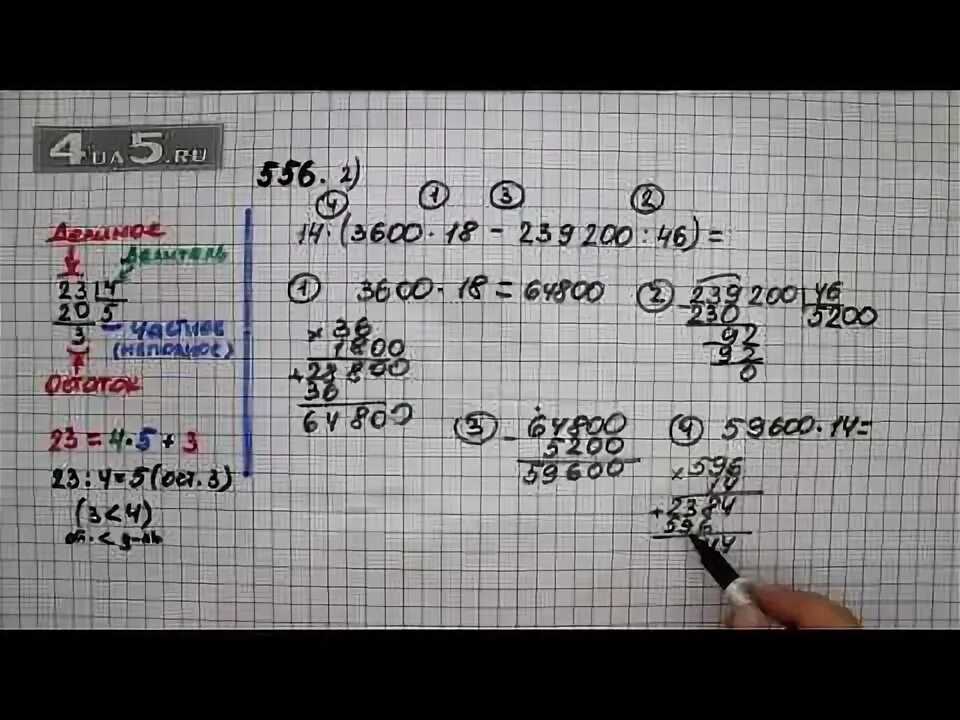 4UA5.RU
556. 2)
④ ① ③ ②
14·(3600·18 - 239200:46) =
Делимое
Делитель
23 4
20 5
3
частное
(неполное)
Остаток
23 = 4·5 + 3
23:4=5(ост.3)
(3<4)
ост.< д-ль
① 3600·18 = 64800
× 36
1800
+ 28800
36
64800
② 239200 46
- 230 5200
92
- 92
0
③ - 64800
5200
59600
④ 59600·14=
× 596
14
+ 2384
596
44